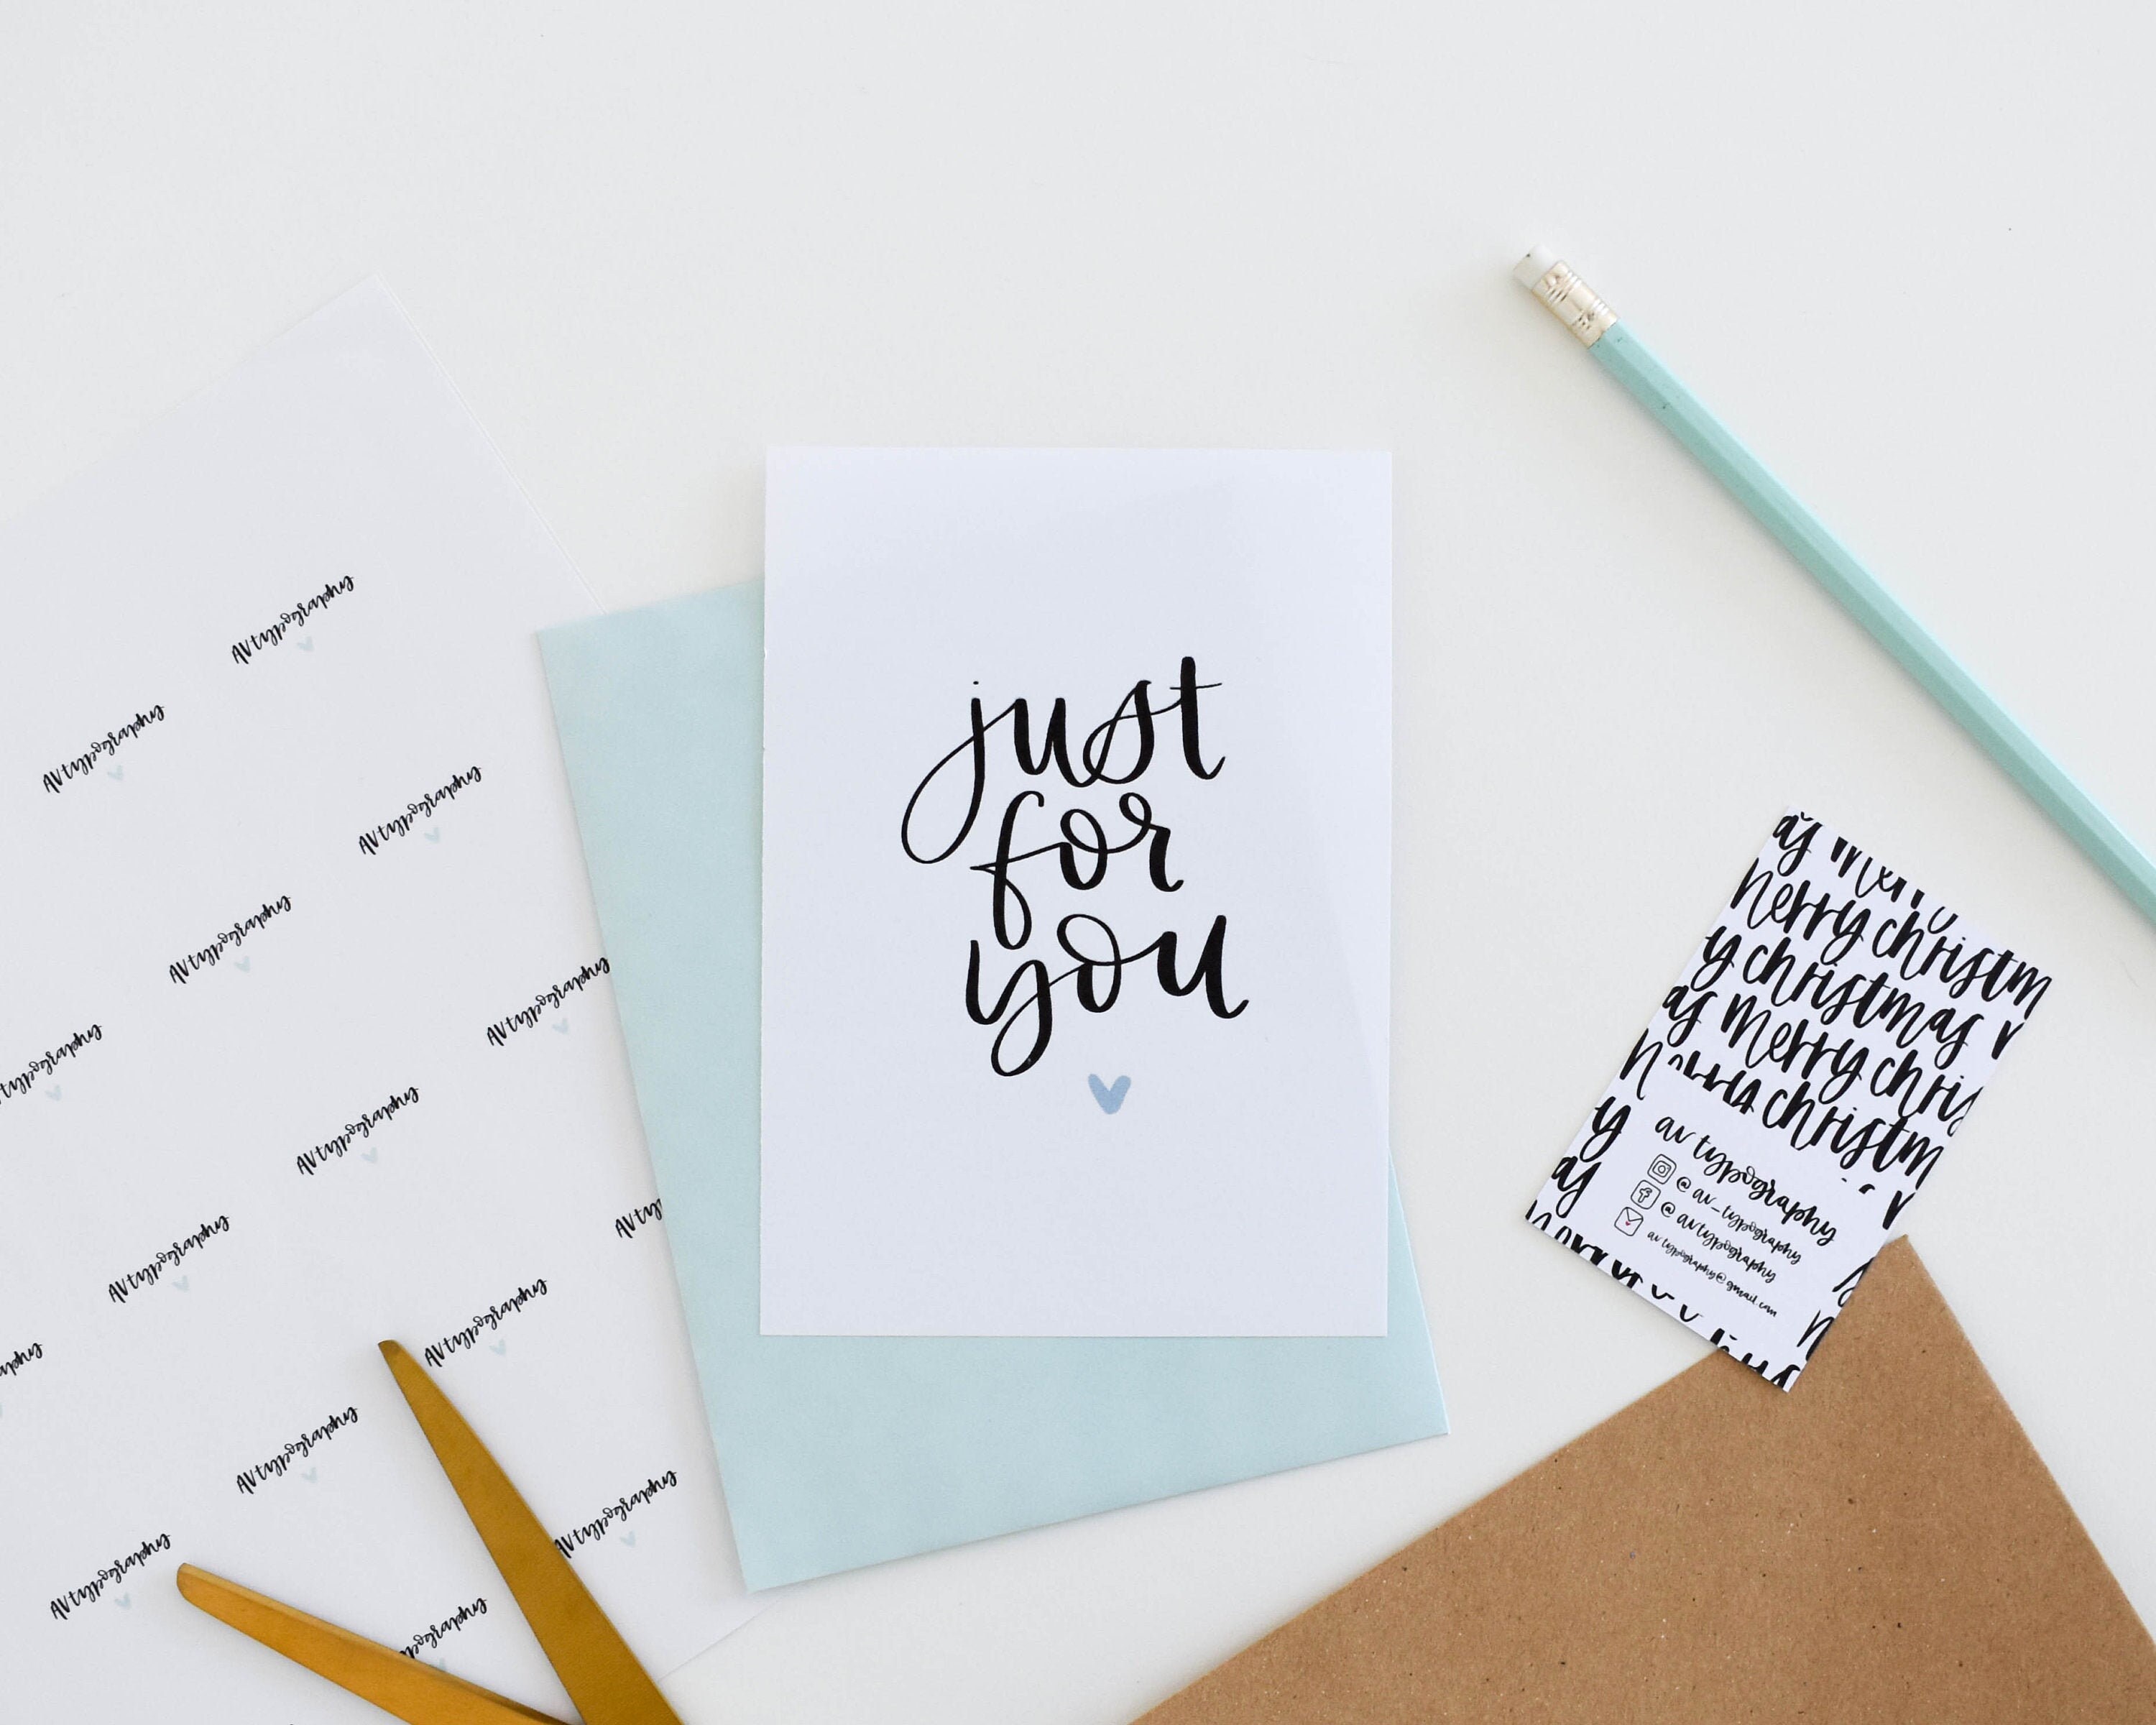 just
for
you
AVtypography
AVtypography
AVtypography
AVtypography
AVtypography
AVtypography
AVtypography
AVtypography
AVtypography
AVtypography
AVtypography
AVtypography
as merry
merry christm
y christmas
as merry chris
merry christm
y
as
av typography
@av_typography
@avtypography
avtypography@gmail.com